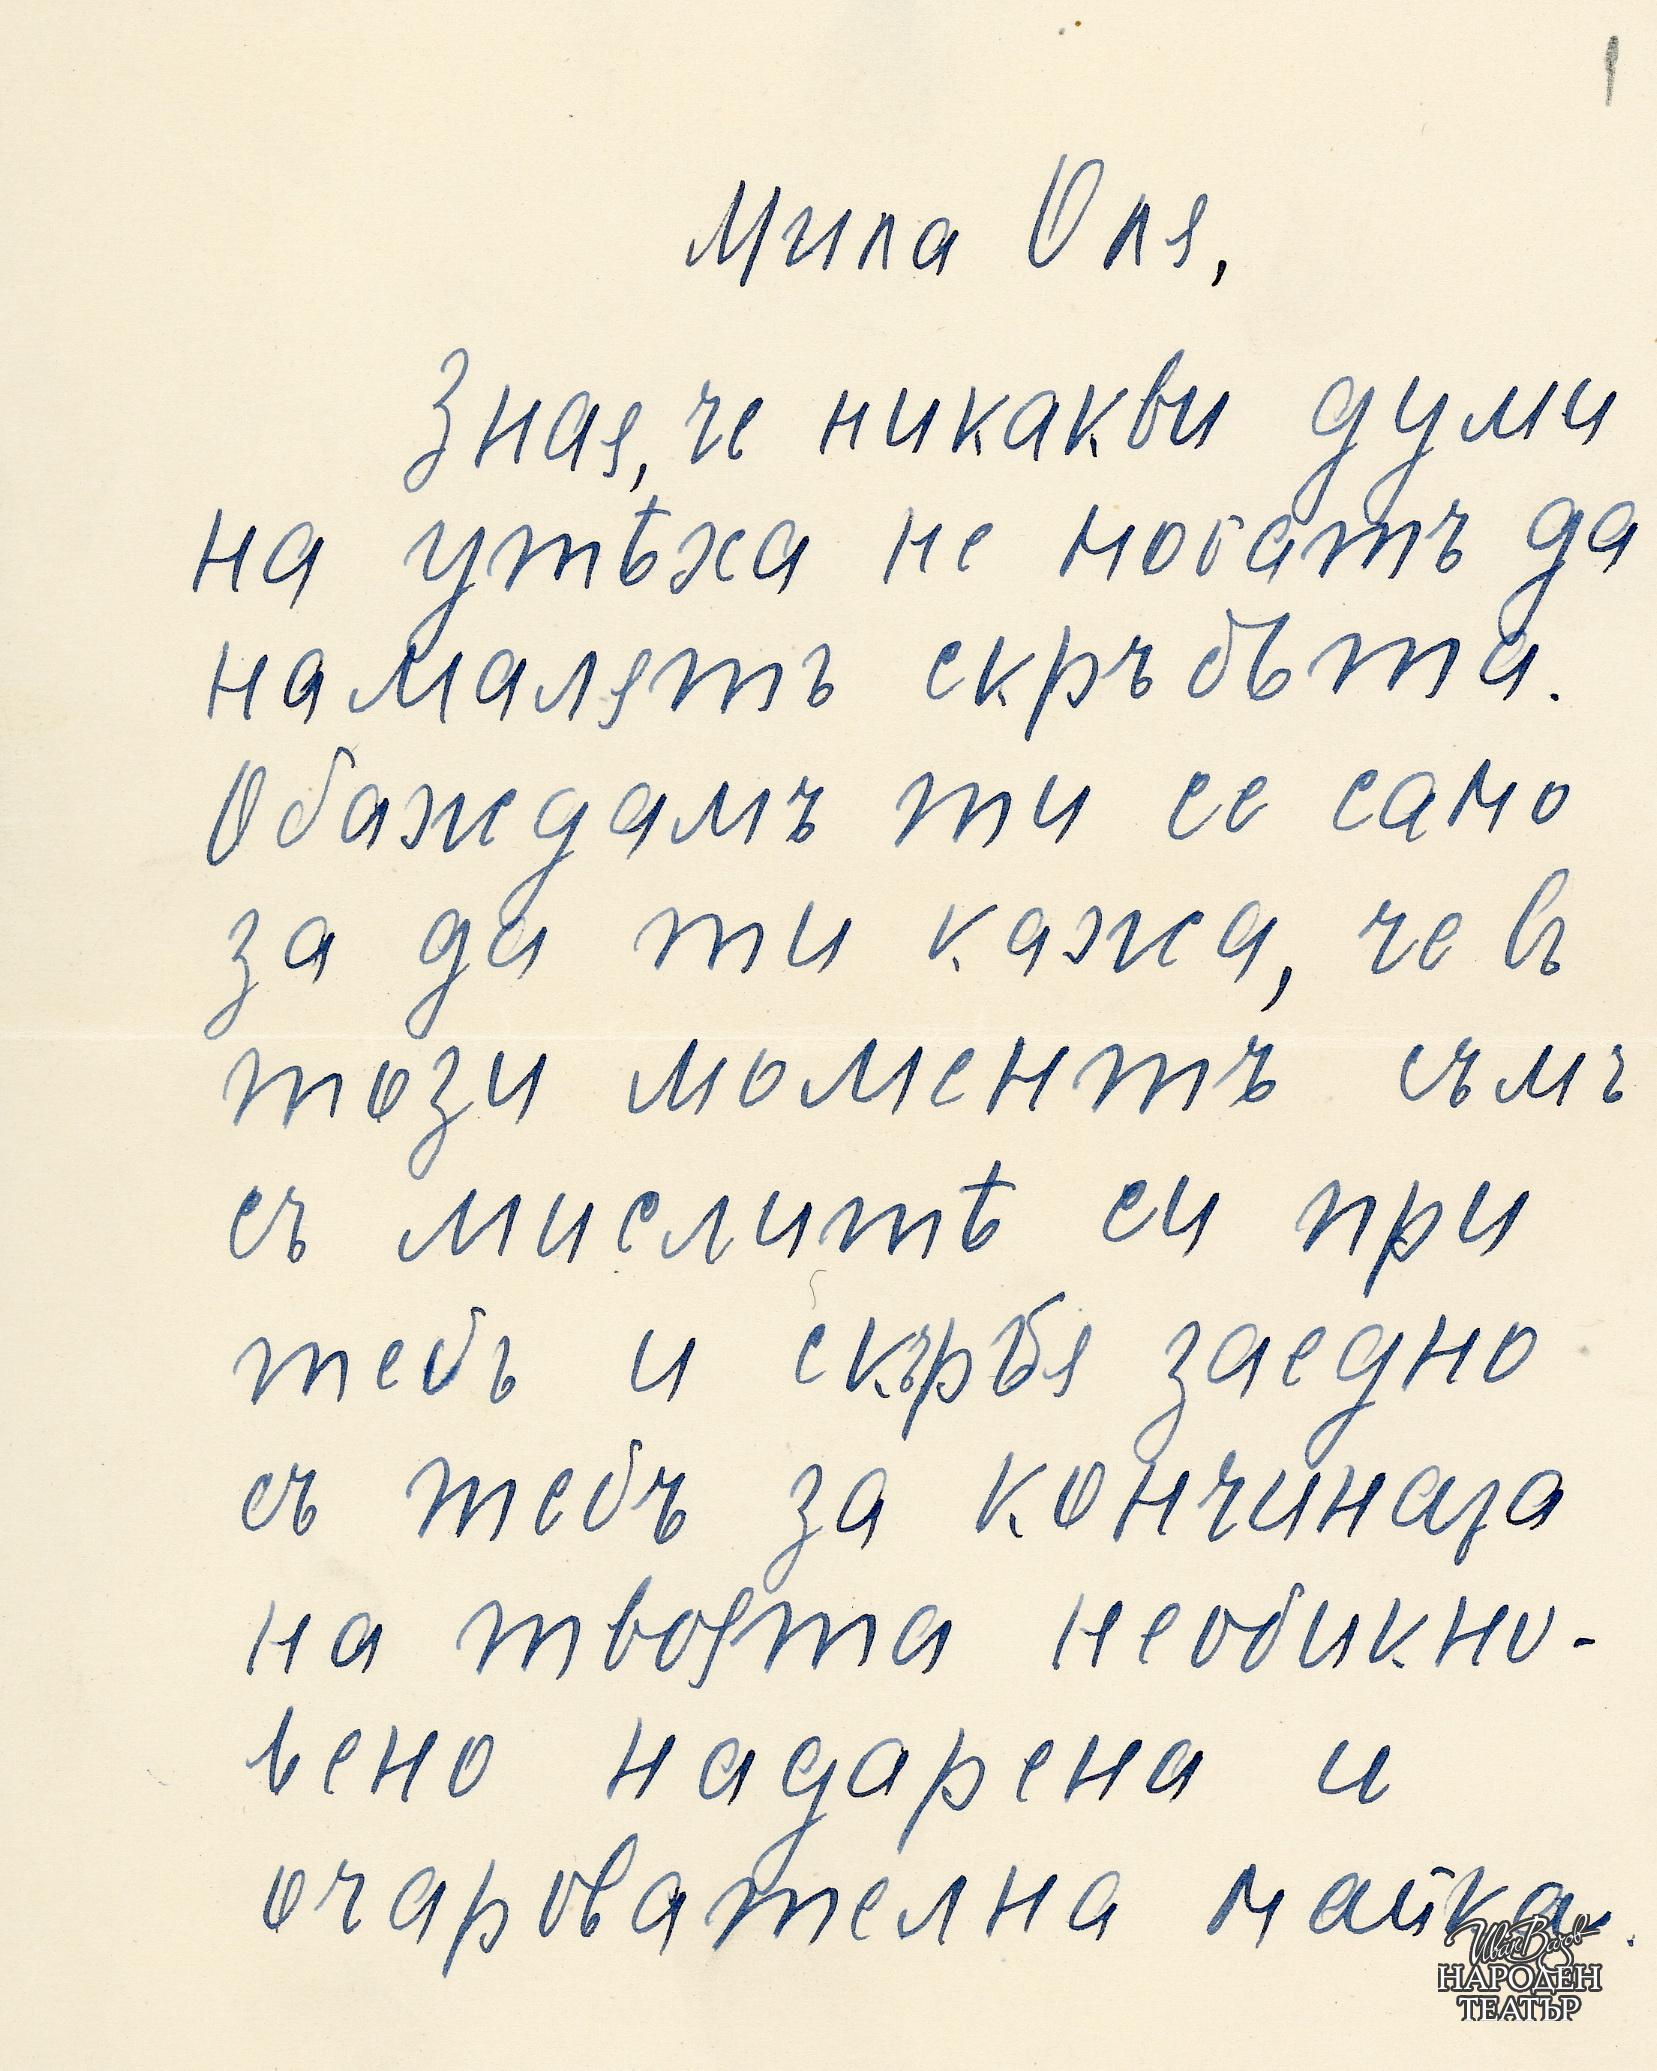 Мила Оля,
Зная, че никакви думи
на утѣха не могатъ да
намалятъ скръбьта.
Обаждамъ ти се само
за да ти кажа, че въ
този моментъ съмъ
съ мислитѣ си при
тебъ и скърбя заедно
съ тебъ за кончината
на твоята необикно-
вено надарена и
очарователна майка.
Иван Вазов
НАРОДЕН
ТЕАТЪР